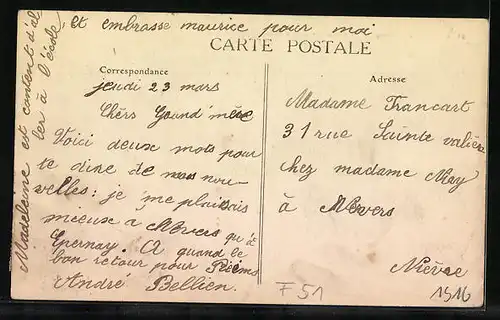 et embrasse maurice pour moi
CARTE POSTALE
Correspondance
jeudi 23 mars
Chèrs Grand'mère
Voici deux mots pour
te dire de mes nou-
velles: je me plaisais
mieux a Nevers qu'à
Epernay. A quand le
bon retour pour Reims
Andre Bellien.
Madeleine est contente d'al-
ler à l'école.
Adresse
Madame Francart
31 rue Sainte valière
chez madame May
à Nevers
Nièvre
1916
F 51